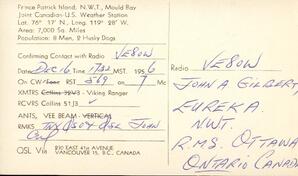 Prince Patrick Island, N.W.T., Mould Bay
Joint Canadian-U.S. Weather Station
Lat. 76° 17' N, Long. 119° 28' W.
Area: 7,000 Sq. Miles
Population: 8 Men, 2 Husky Dogs
Confirming Contact with Radio VE8OW
Date DEC 16 Time 1732 MST. 1956
On CW RST 569 on 7 Mc
XMTRS Collins 32V3 - Viking Ranger
RCVRS Collins 51J3 ✓
ANTS, VEE BEAM-VERTICAL
RMKS TNX QSO & QSL JOHN
CUL
QSL Via 910 EAST 41st AVENUE
VANCOUVER 15, B.C. CANADA
Radio VE8OW
JOHN A GILBERT,
EUREKA.
NWT.
R.M.S. OTTAWA
ONTARIO CANADA